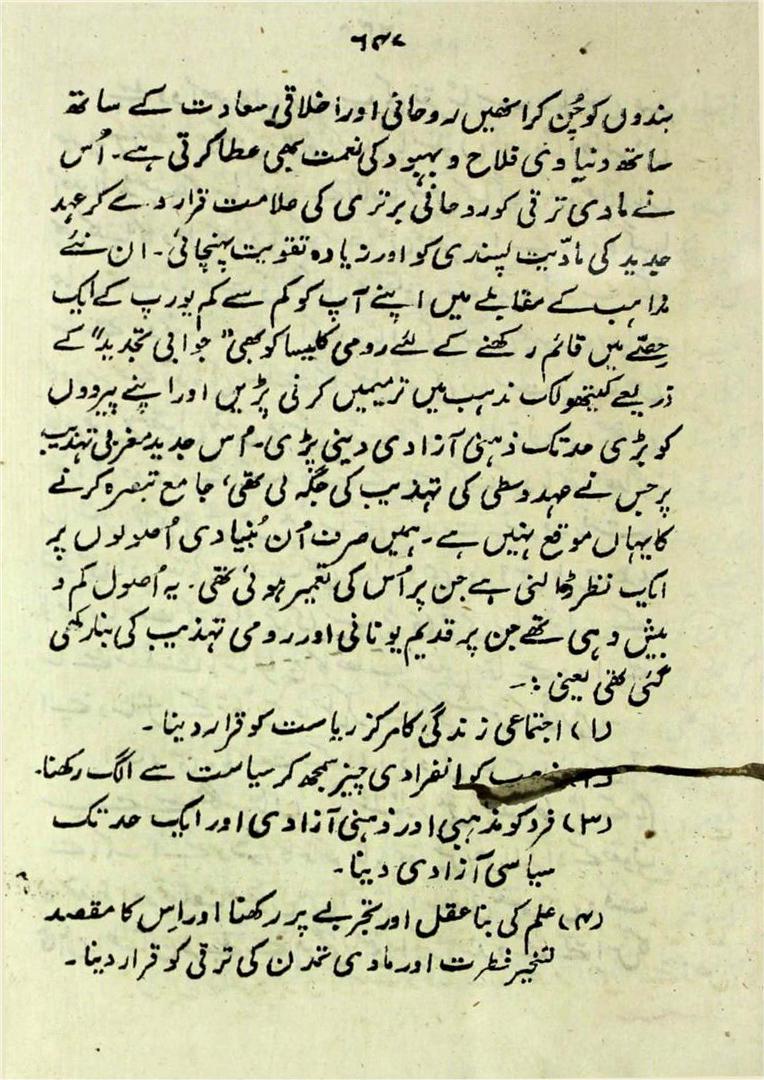 ۶۴۷
بندوں کو چُن کر انھیں روحانی اور اخلاقی سعادت کے ساتھ
ساتھ دنیاوی فلاح و بہبود کی نعمت بھی عطا کرتی ہے۔ اُس
نے مادی ترقی کو روحانی برتری کی علامت قرار دے کر عہد
جدید کی مادّیت پسندی کو اور زیادہ تقویت پہنچائی۔ ان نئے
مذاہب کے مقابلے میں اپنے آپ کو کم سے کم یورپ کے ایک
حصّے میں قائم رکھنے کے لئے رومی کلیسا کو بھی "جوابی تجدید" کے
ذریعے کیتھولک مذہب میں ترمیمیں کرنی پڑیں اور اپنے پیرووں
کو بڑی حد تک ذہنی آزادی دینی پڑی۔ اُس جدید مغربی تہذیب
پر جس نے عہد وسطی کی تہذیب کی جگہ لی تھی، جامع تبصرہ کرنے
کا یہاں موقع نہیں ہے۔ ہمیں صرف اُن بُنیادی اُصولوں پر
ایک نظر ڈالنی ہے جن پر اُس کی تعمیر ہوئی تھی۔ یہ اُصول کم و
بیش وہی تھے جن پر قدیم یونانی اور رومی تہذیب کی بنا رکھی
گئی تھی یعنی :۔
(۱) اجتماعی زندگی کا مرکز ریاست کو قرار دینا۔
(۲) مذہب کو انفرادی چیز سمجھ کر سیاست سے الگ رکھنا۔
(۳) فرد کو مذہبی اور ذہنی آزادی اور ایک حد تک
سیاسی آزادی دینا۔
(۴) علم کی بنا عقل اور تجربے پر رکھنا اور اِس کا مقصد
تسخیر فطرت اور مادی تمدن کی ترقی کو قرار دینا۔